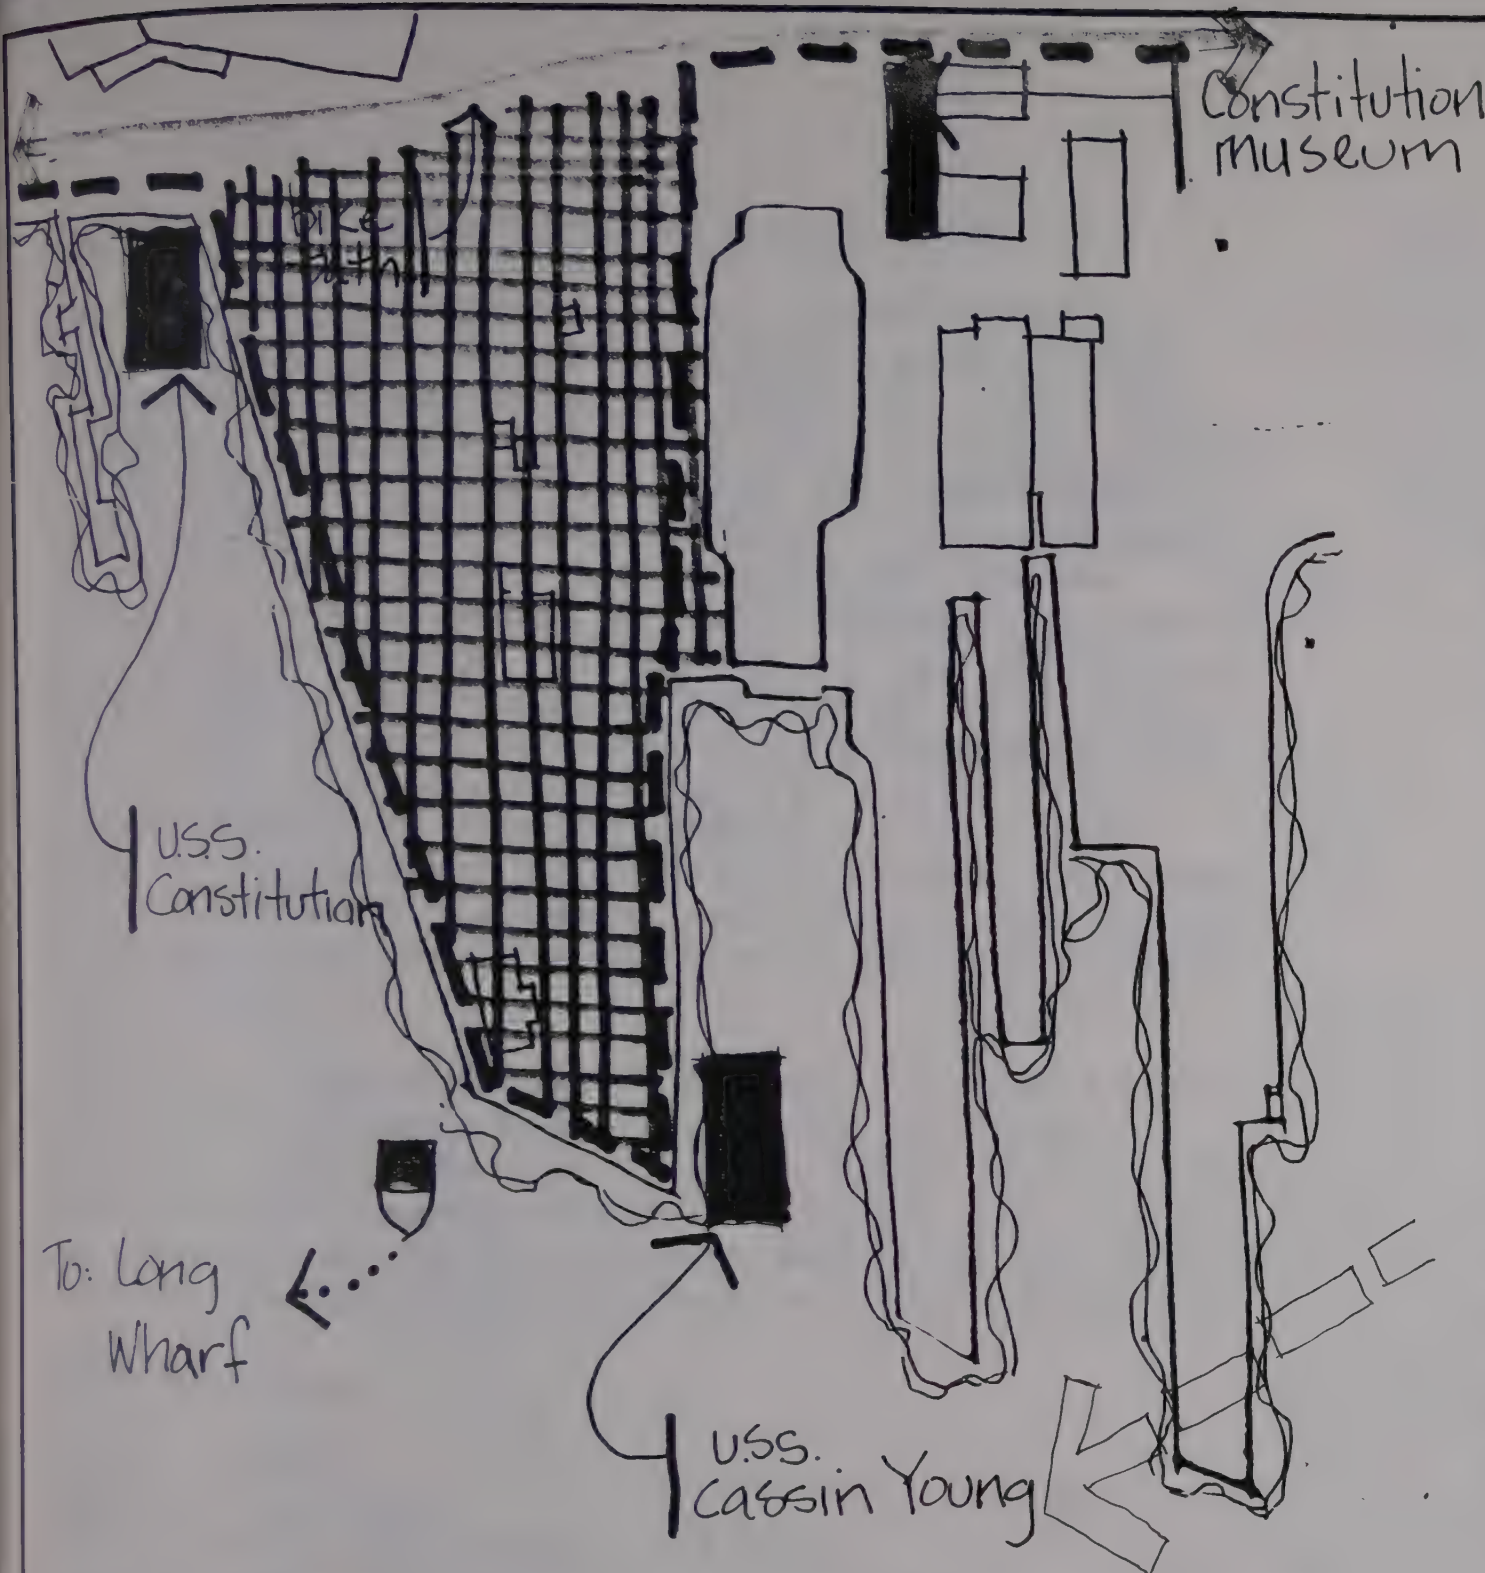 Constitution
Museum
bike
path
U.S.S.
Constitution
To: Long
Wharf
U.S.S.
Cassin Young